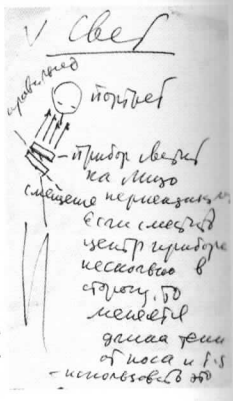 V Свет
правильно
портрет
– прибор светит
на лицо
смещение
Если сместить
центр прибора
несколько в
сторону, то
меняется
длина тени
от носа и т.д
– использовать это